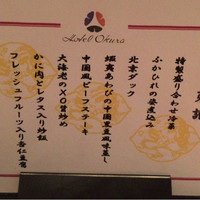 Hotel Okura
特製盛り合わせ冷菜
ふかひれの姿煮込み
北京ダック
蝦夷あわびの中国黒豆風味蒸し
中国風ビーフステーキ
大海老のXO醤炒め
かに肉とレタス入り炒飯
フレッシュフルーツ入り杏仁豆腐